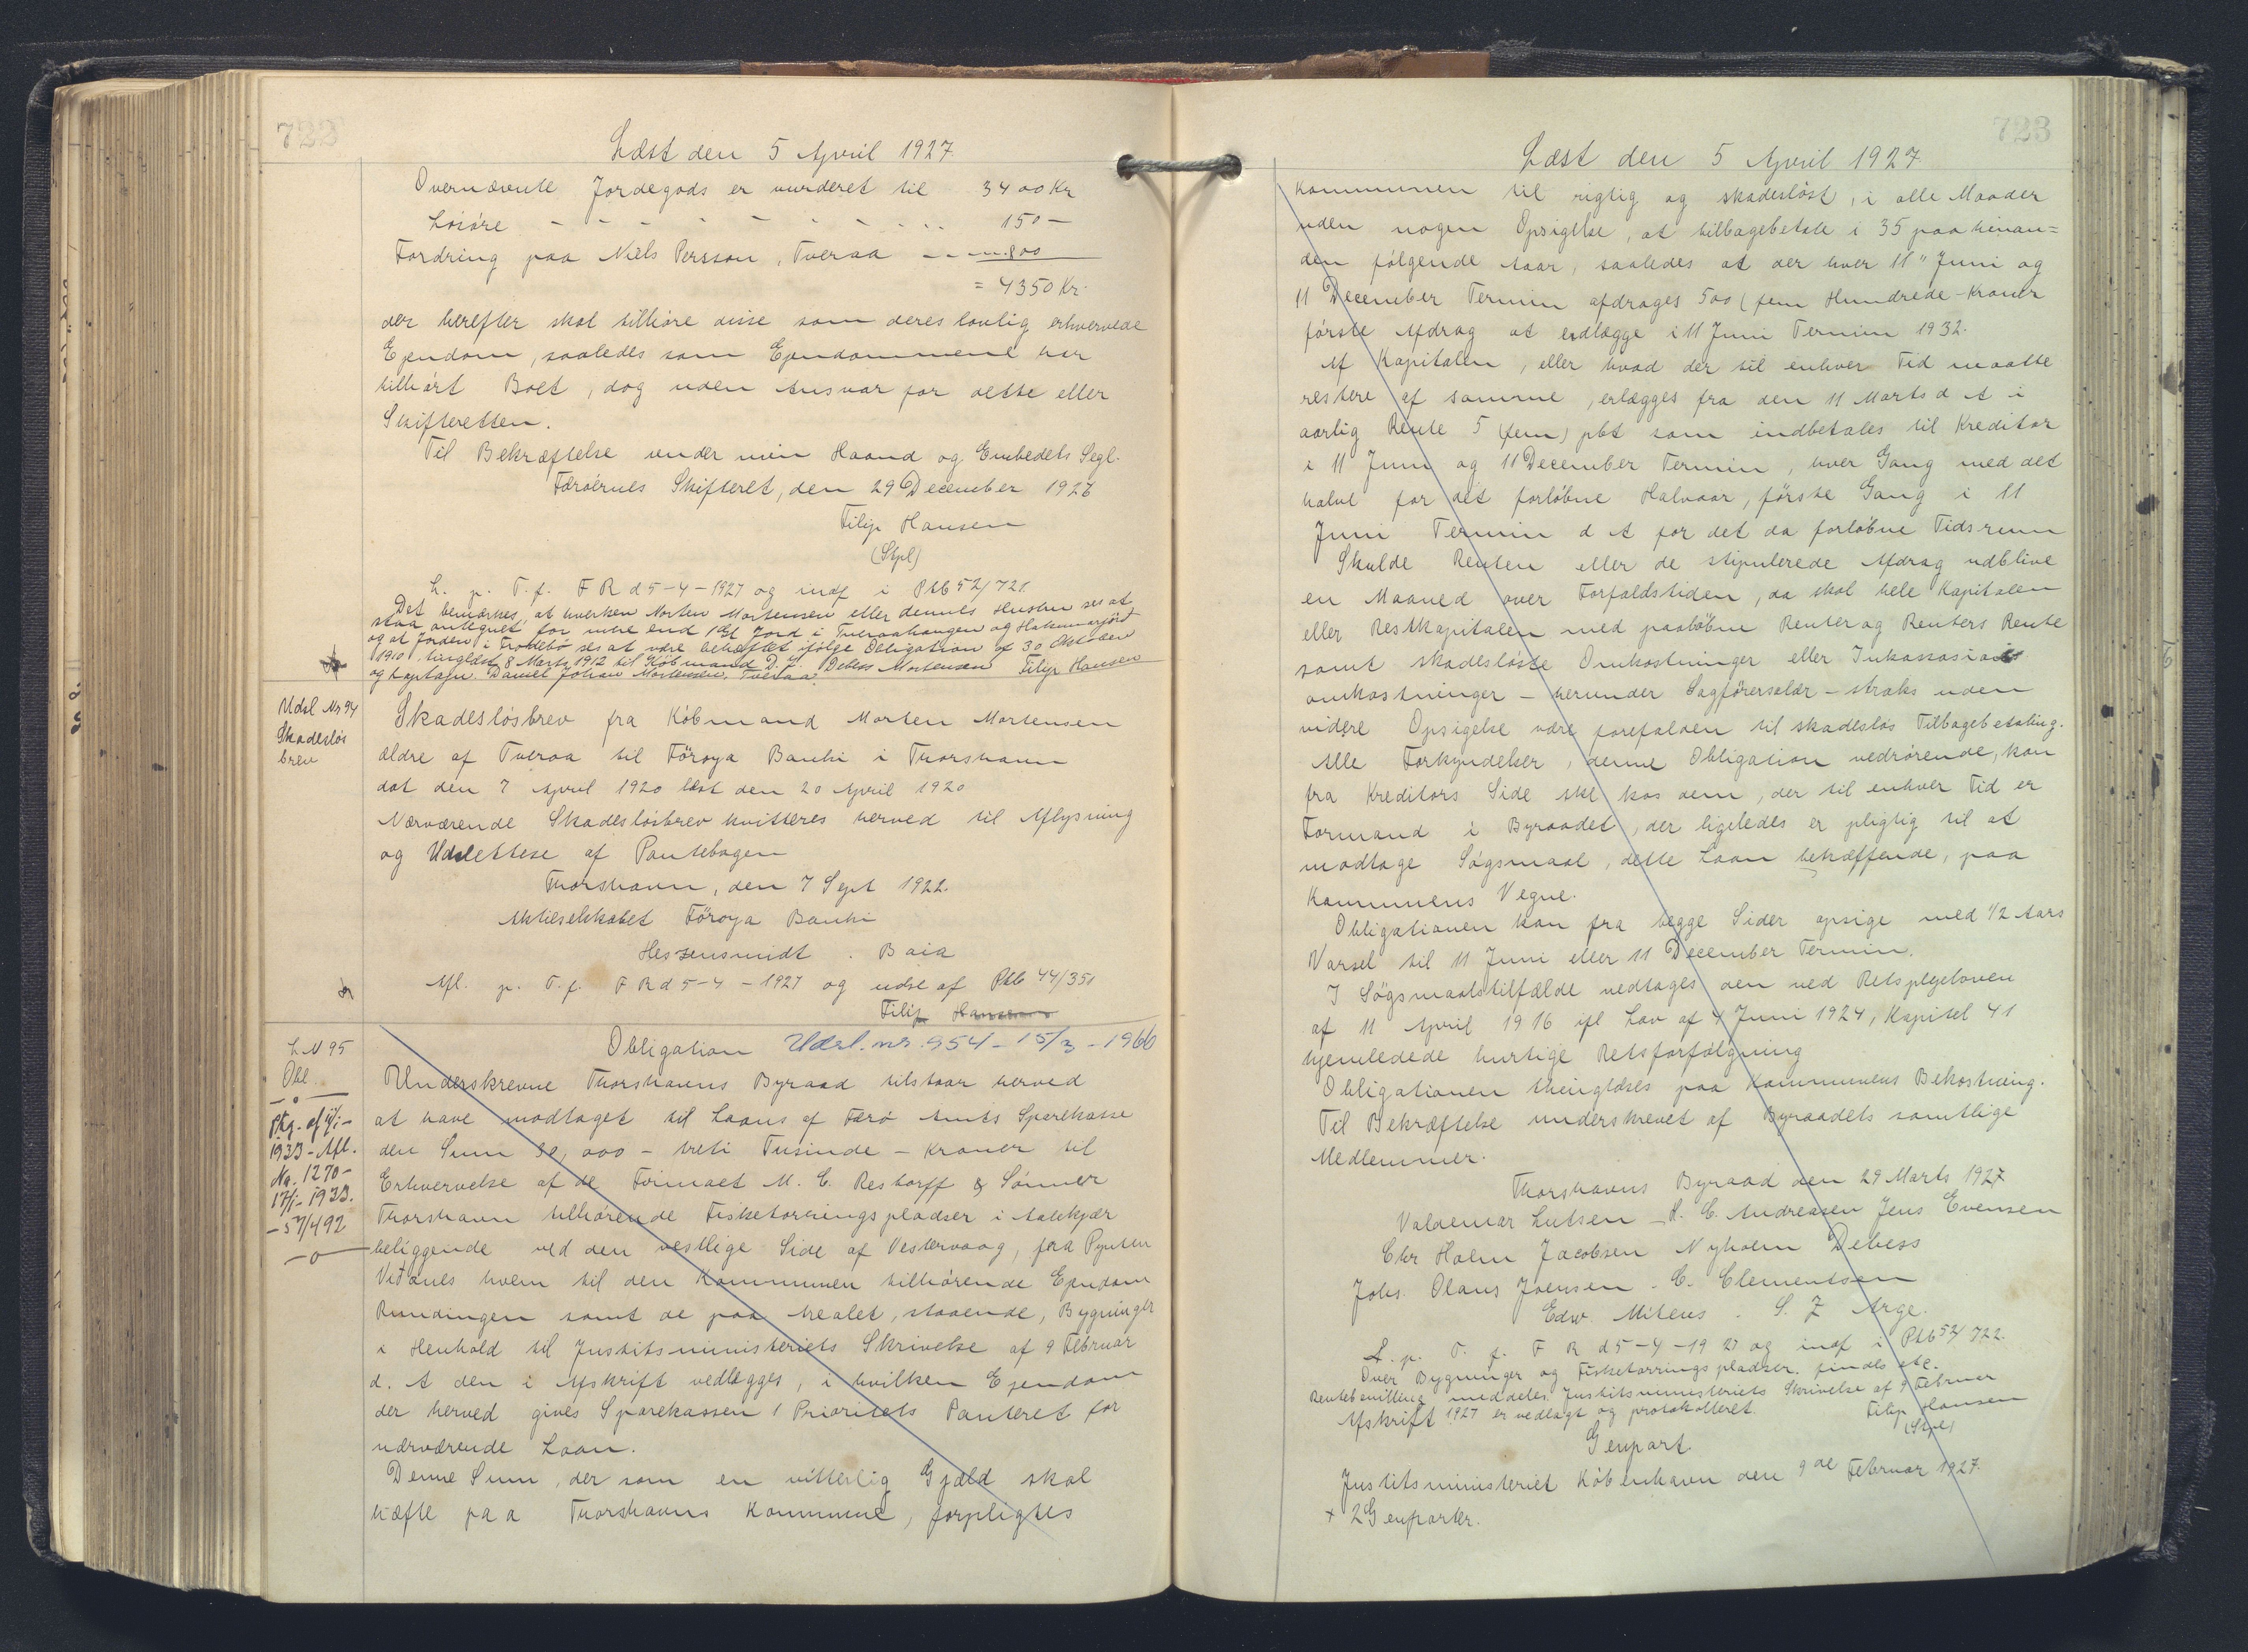 722
Læst den 5 April 1927.
Ovennævnte Jordegods er vurderet til 3400 Kr
Løsøre - - - - - - - - - 150 -
Fordring paa Niels Persson, Tveraa - - 800
= 4350 Kr.
der herefter skal tilhøre disse som deres lovlig erhvervede
Ejendom, saaledes som Ejendommene har
tilhørt Boet, dog uden Ansvar for dette eller
Skifteretten.
Til Bekræftelse under min Haand og Embedets Segl.
Færøernes Skifteret, den 29 December 1926
Filip Hansen
(Stpl)
L. p. T. f. F R d 5-4-1927 og indf i Ptb 52/721.
Det bemærkes, at hverken Morten Mortensen eller dennes Hustru ses at
staa antegnet for mere end 1 Gl Jord i Tveraahaugen og
og at Jorden i Froðebø ses at være behæftet ifølge Obligation af 30 Oktober
1910 tinglæst 8 Marts 1912 til Købmand D. J. Debess Mortensen
og Kaptajn Daniel Johan Mortensen, Tveraa. Filip Hansen
Udsl Nr 94
Skadesløs
brev
Skadesløsbrev fra Købmand Morten Mortensen
ældre af Tveraa til Föroya Banki i Thorshavn
dat den 7 April 1920 læst den 20 April 1920
Nærværende Skadesløsbrev kvitteres herved til Aflysning
og Udslettese af Pantebogen
Thorshavn, den 7 Sept 1922.
Aktieselskabet Föroya Banki
Heszensmidt . Baia
Afl. p. T. f. F R d 5-4-1927 og udsl af Ptb 44/351
Filip Hansen
L N 95
Obl.
Ptg. af 11/1-
1933 - Afl.
No. 1270 -
17/1-1933.
- 57/492
Obligation Udsl. nr. 954 - 15/3 - 1966
Underskrevne Thorshavns Byraad tilstaar herved
at have modtaget til Laans af Færø Amts Sparekasse
den Sum 30,000 - treti Tusinde - Kroner til
Erhvervelse af de Firmaet M. C. Restorff & Sønner
Thorshavn tilhørende Fisketørringspladser i Aalekjær
beliggende ved den vestlige Side af Vestervaag, fra Pynten
Viðanes hvem til den Kommunen tilhørende Ejendom
Rundingen samt de paa Arealet, staaende, Bygninger
i Henhold til Justitsministeriets Skrivelse af 9 Februar
d. A den i Afskrift vedlægges, i hvilken Ejendom
der herved gives Sparekassen 1 Prioritets Panteret for
nærværende Laan.
Denne Sum, der som en vitterlig Gjæld skal
hæfte paa Thorshavns Kommune, forpligtes
723
Læst den 5 April 1927
Kommunen til rigtig og skadesløst, i alle Maader
uden nogen Opsigelse, at tilbagebetale i 35 paa hinan=
den følgende Aar, saaledes at der hver 11" Juni og
11 December Termin afdrages 500 (fem Hundrede - Kroner
første Afdrag at erlægge i 11 Juni Termin 1932.
Af Kapitalen, eller hvad der til enhver Tid maatte
restere af samme, erlægges fra den 11 Marts d A i
aarlig Rente 5 (fem) pct som indbetales til Kreditor
i 11 Juni og 11 December Termin, hver Gang med det
halve for det forløbne Halvaar, første Gang i 11
Juni Termin d A for det da forløbne Tidsrum
Skulde Renten eller de stipulerede Afdrag udblive
en Maaned over Forfaldstiden, da skal hele Kapitalen
eller Restkapitalen med paaløbne Renter og Renters Rente
samt skadesløse Omkostninger eller Inkassasions
omkostninger - herunder Sagførersalær - straks uden
videre Opsigelse være forefalden til skadesløs Tilbagebetaling.
Alle Forkyndelser, denne Obligation vedrørende, kan
fra Kreditors Side ske hos dem, der til enhver Tid er
Formand i Byraadet, der ligeledes er pligtig til at
modtage Søgsmaal, dette Laan betræffende, paa
Kommunens Vegne.
Obligationen kan fra begge Sider opsige med 1/2 Aars
Varsel til 11 Juni eller 11 December Termin.
I Søgsmaalstilfælde vedtages den ved Retsplejeloven
af 11 April 1916 ifl Lov af 4 Juni 1924, Kapitel 41
hjemledede hurtige Retsforfølgning
Obligationen thinglæses paa Kommunens Bekostning.
Til Bekræftelse underskrevet af Byraadets samtlige
Medlemmer.
Thorshavns Byraad den 29 Marts 1927
Valdemar Lutzen - H. C. Andreasen Jens Evensen
Chr Holm Jacobsen Nyholm Debess
Johs. Olaus Joensen. C. Clementsen
Edw. Mitens . S. J Arge.
L. p. T. f. F R d 5-4-1927 og indf i Ptb 52/722.
Over Bygninger og Fisketørringspladser findes ete.
Rentebevilling meddeles Justitsministeriets Skrivelse af 9 Februar
Afskrift 1927 er vedlagt og protokolleret. Filip Hansen
(Stpl)
Genpart
Justitsministeriet København den 9de Februar 1927.
+ 2 Genparter.